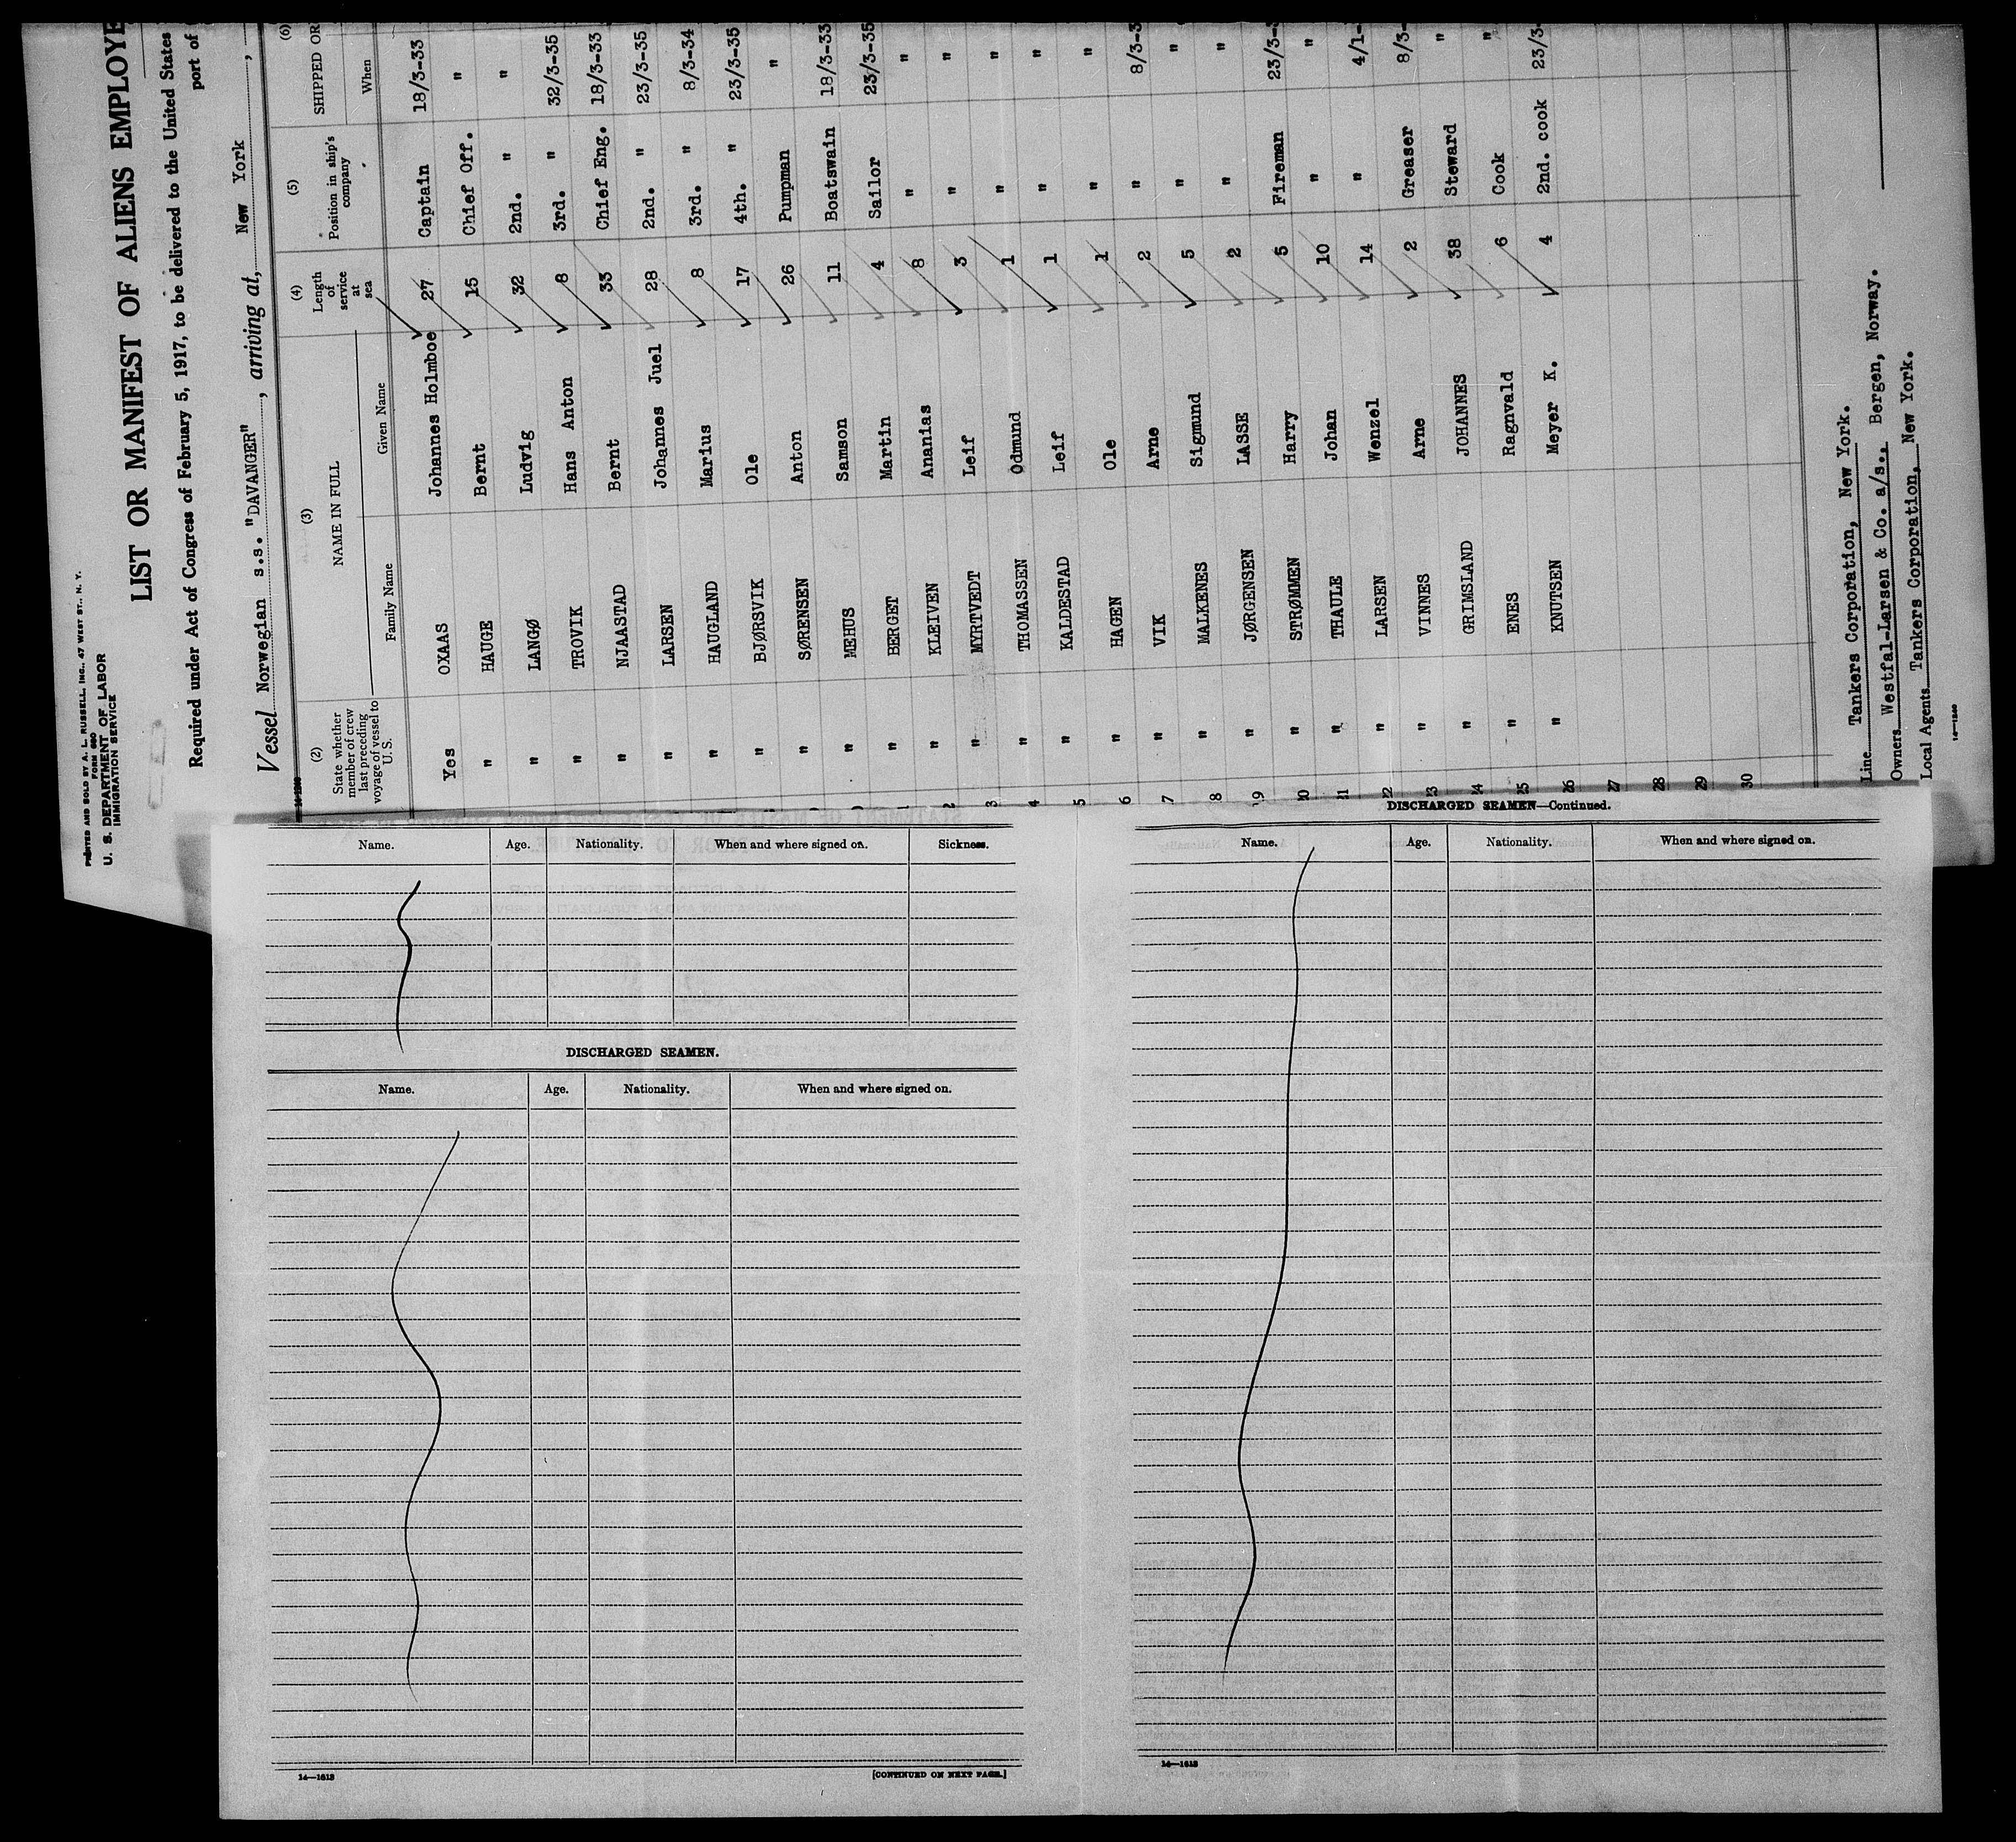 PRINTED AND SOLD BY A. L. RUSSELL, INC., 47 WEST ST., N. Y.
FORM 680
U. S. DEPARTMENT OF LABOR
IMMIGRATION SERVICE
LIST OR MANIFEST OF ALIENS EMPLOYE
Required under Act of Congress of February 5, 1917, to be delivered to the United States
port of
Vessel Norwegian s.s. "DAVANGER", arriving at, New York,
(2) (3) (4) (5) (6)
State whether member of crew last preceding voyage of vessel to U. S. NAME IN FULL Length of service at sea Position in ship's company SHIPPED OR
Family Name Given Name When
Yes OXAAS Johannes Holmboe 27 Captain 18/3-33
" HAUGE Bernt 15 Chief Off. "
" LANGØ Ludvig 32 2nd. " "
" TROVIK Hans Anton 8 3rd. " 32/3-35
" NJAASTAD Bernt 33 Chief Eng. 18/3-33
" LARSEN Johannes Juel 28 2nd. " 23/3-35
" HAUGLAND Marius 8 3rd. " 8/3-34
" BJØRSVIK Ole 17 4th. " 23/3-35
" SØRENSEN Anton 26 Pumpman "
" MEHUS Samson 11 Boatswain 18/3-33
" BERGET Martin 4 Sailor 23/3-35
" KLEIVEN Ananias 8 " "
2 " MYRTVEDT Leif 3 " "
3 " THOMASSEN Odmund 1 " "
4 " KALDESTAD Leif 1 " "
5 " HAGEN Ole 1 " "
6 " VIK Arne 2 " 8/3-3
7 " MALKENES Sigmund 5 " "
8 " JØRGENSEN LASSE 2 " "
19 " STRØMMEN Harry 5 Fireman 23/3-3
20 " THAULE Johan 10 " "
21 " LARSEN Wenzel 14 " 4/1-
22 " VINNES Arne 2 Greaser 8/3-
23 " GRIMSLAND JOHANNES 38 Steward "
24 " ENES Ragnvald 6 Cook "
25 " KNUTSEN Meyer K. 4 2nd. cook 23/3-
26
27
28
29
30
Line Tankers Corporation, New York.
Owners Westfal-Larsen & Co. a/s., Bergen, Norway.
Local Agents Tankers Corporation, New York.
14—1240
Name. Age. Nationality. When and where signed on. Sickness.
DISCHARGED SEAMEN.
Name. Age. Nationality. When and where signed on.
14—1613
[CONTINUED ON NEXT PAGE.]
DISCHARGED SEAMEN—Continued.
Name. Age. Nationality. When and where signed on.
14—1613